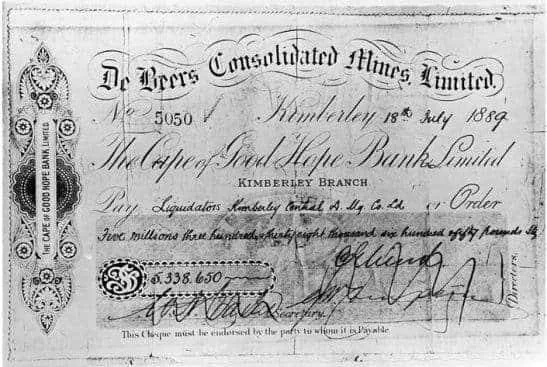 De Beers Consolidated Mines, Limited.
No 5050 Kimberley 18th July 1889
The Cape of Good Hope Bank Limited
KIMBERLEY BRANCH
Pay Liquidators Kimberley Central D. Mg. Co. Ld. or Order
Five millions three hundred & thirty eight thousand six hundred & fifty pounds Stg
£5,338,650
Directors.
Secretary.
This Cheque must be endorsed by the party to whom it is Payable
THE CAPE OF GOOD HOPE BANK LIMITED